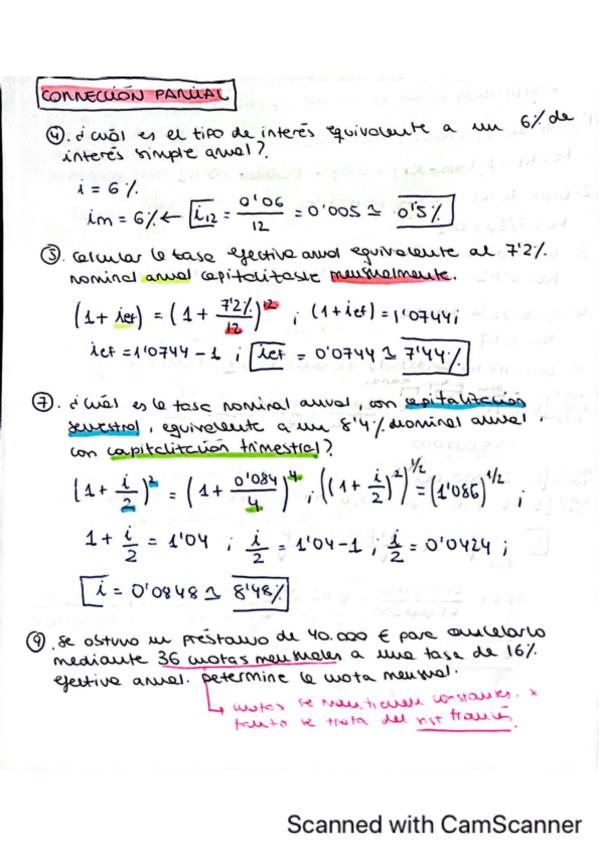 CORRECCIÓN PARCIAL
④. ¿cuál es el tipo de interés equivalente a un 6% de
interés simple anual?.
i = 6%.
im = 6% ← i12 = 0'06/12 = 0'005 ≃ 0'5%
⑤. Calcular la tasa efectiva anual equivalente al 7'2%
nominal anual capitalizable mensualmente.
(1 + ief) = (1 + 7'2%/12)^12 ; (1 + ief) = 1'0744;
ief = 1'0744 - 1 ; ief = 0'0744 ≃ 7'44%
⑦. ¿cuál es la tasa nominal anual, con capitalización
semestral, equivalente a un 8'4% nominal anual,
con capitalización trimestral?
(1 + i/2)^2 = (1 + 0'084/4)^4 ; ((1 + i/2)^2)^1/2 = (1'086)^1/2 ;
1 + i/2 = 1'04 ; i/2 = 1'04 - 1 ; i/2 = 0'0424 ;
i = 0'0848 ≃ 8'48%
⑨. Se obtuvo un préstamo de 40.000 € para cancelarlo
mediante 36 cuotas mensuales a una tasa de 16%
efectiva anual. Determine la cuota mensual.
↳ cuotas se mantienen constantes. x
tanto se trata del sist francés.
Scanned with CamScanner